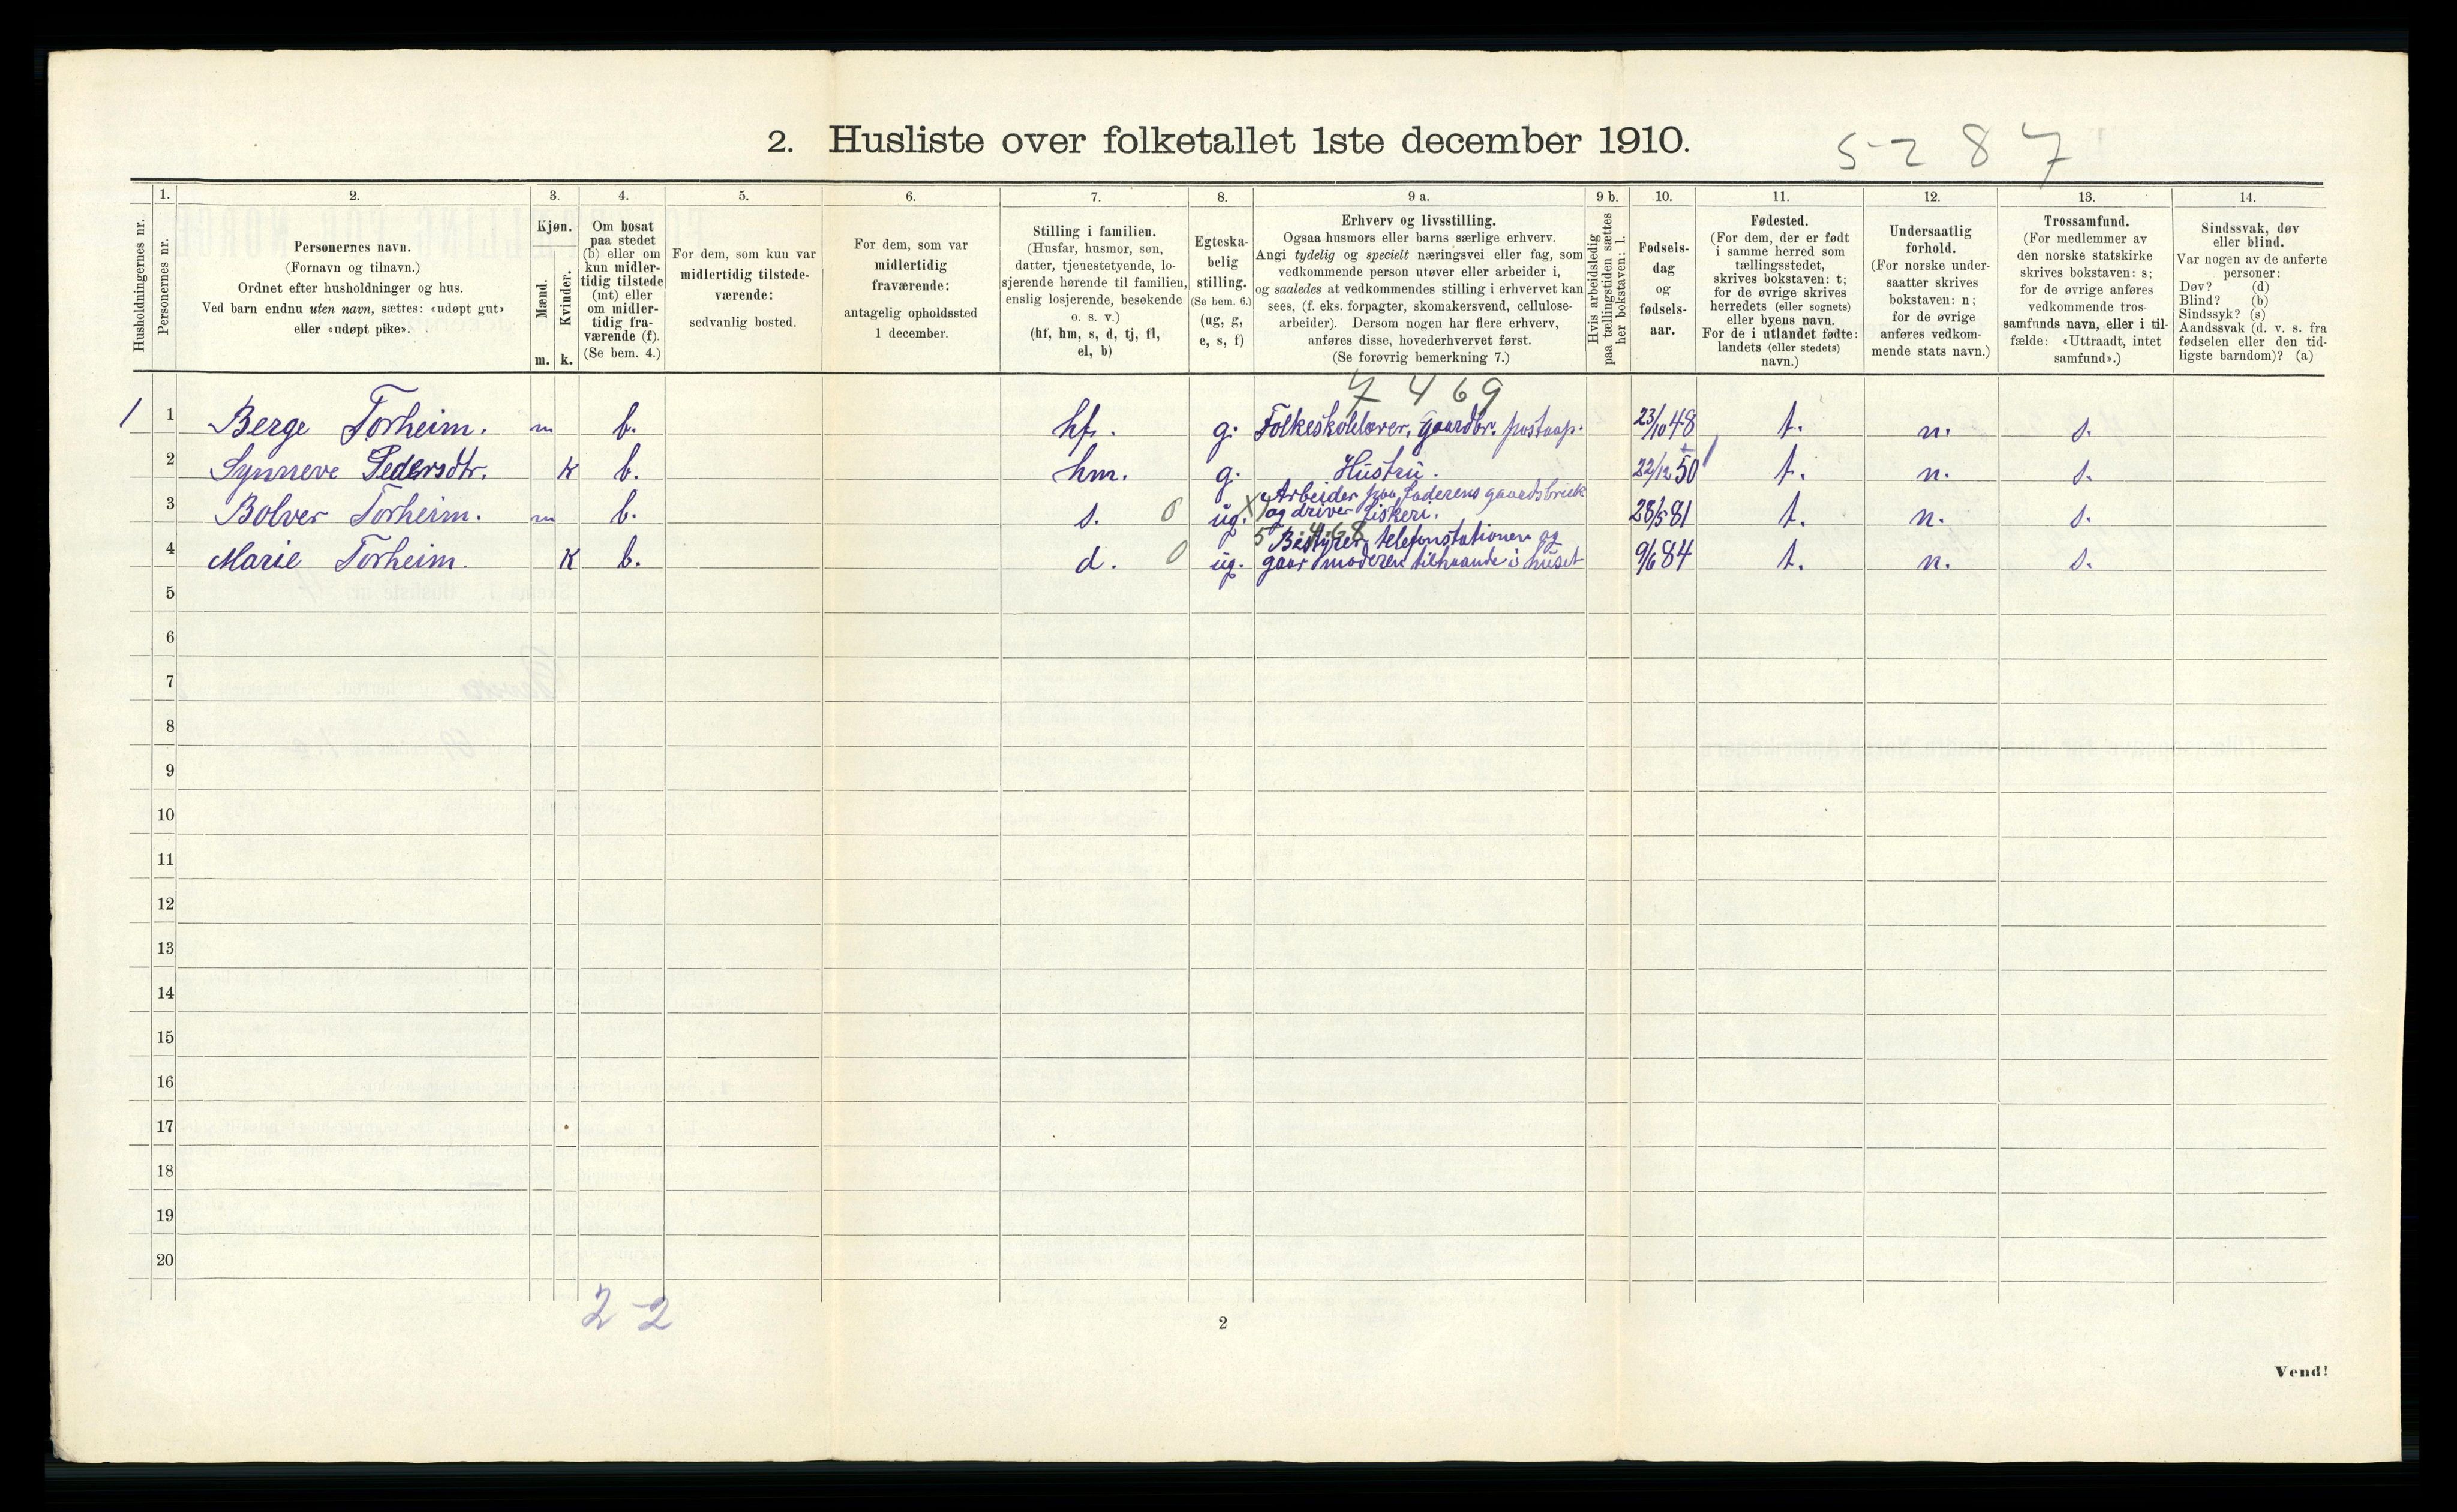 2. Husliste over folketallet 1ste december 1910.
5287
Husholdningernes nr.
1.
Personernes nr.
2.
Personernes navn.
(Fornavn og tilnavn.)
Ordnet efter husholdninger og hus.
Ved barn endnu uten navn, sættes: «udøpt gut»
eller «udøpt pike».
3.
Kjøn.
Mænd.
Kvinder.
m. k.
4.
Om bosat
paa stedet
(b) eller om
kun midler-
tidig tilstede
(mt) eller
om midler-
tidig fra-
værende (f).
(Se bem. 4.)
5.
For dem, som kun var
midlertidig tilstede-
værende:
sedvanlig bosted.
6.
For dem, som var
midlertidig
fraværende:
antagelig opholdssted
1 december.
7.
Stilling i familien.
(Husfar, husmor, søn,
datter, tjenestetyende, lo-
sjerende hørende til familien,
enslig losjerende, besøkende
o. s. v.)
(hf, hm, s, d, tj, fl,
el, b)
8.
Egteska-
belig
stilling.
(Se bem. 6.)
(ug, g,
e, s, f)
9 a.
Erhverv og livsstilling.
Ogsaa husmors eller barns særlige erhverv.
Angi tydelig og specielt næringsvei eller fag, som
vedkommende person utøver eller arbeider i,
og saaledes at vedkommendes stilling i erhvervet kan
sees, (f. eks. forpagter, skomakersvend, cellulose-
arbeider). Dersom nogen har flere erhverv,
anføres disse, hovederhvervet først.
(Se forøvrig bemerkning 7.)
9 b.
Hvis arbeidsledig
paa tællingstiden sættes
her bokstaven: l.
10.
Fødsels-
dag
og
fødsels-
aar.
11.
Fødested.
(For dem, der er født
i samme herred som
tællingsstedet,
skrives bokstaven: t;
for de øvrige skrives
herredets (eller sognets)
eller byens navn.
For de i utlandet fødte:
landets (eller stedets)
navn.)
12.
Undersaatlig
forhold.
(For norske under-
saatter skrives
bokstaven: n;
for de øvrige
anføres vedkom-
mende stats navn.)
13.
Trossamfund.
(For medlemmer av
den norske statskirke
skrives bokstaven: s;
for de øvrige anføres
vedkommende tros-
samfunds navn, eller i til-
fælde: «Uttraadt, intet
samfund».)
14.
Sindssvak, døv
eller blind.
Var nogen av de anførte
personer:
Døv? (d)
Blind? (b)
Sindssyk? (s)
Aandssvak (d. v. s. fra
fødselen eller den tid-
ligste barndom)? (a)
7 469
1 1 Berge Torheim. m b. hf. g. Folkeskolelærer, gaardbr. postaap. 23/10 48 t. n. s.
2 Synneve Pedersdtr. k b. hm. g. Hustru. 22/12 50 t. n. s.
3 Bolver Torheim. m b. s. 0 ug. X Arbeider paa faderens gaardsbruk
og driver fiskeri. 28/5 81 t. n. s.
5 468
4 Marie Torheim. k b. d. 0 ug. Bestyrer telefonstationen og
gaar moderen tilhaande i huset 9/6 84 t. n. s.
5
6
7
8
9
10
11
12
13
14
15
16
17
18
19
20
2-2
2
Vend!